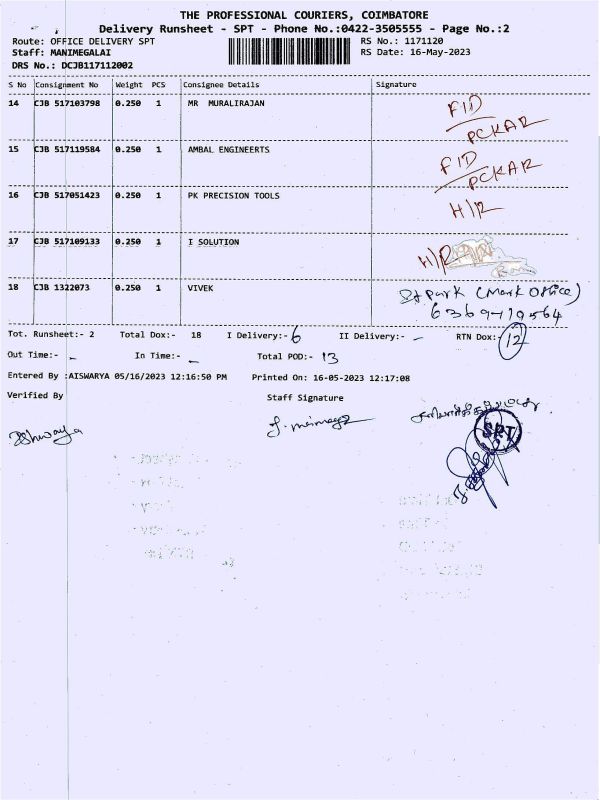 THE PROFESSIONAL COURIERS, COIMBATORE
Delivery Runsheet - SPT - Phone No.:0422-3505555 - Page No.:2
Route: OFFICE DELIVERY SPT RS No.: 1171120
Staff: MANIMEGALAI RS Date: 16-May-2023
DRS No.: DCJB117112002
S No Consignment No Weight PCS Consignee Details Signature
14 CJB 517103798 0.250 1 MR MURALIRAJAN FID
PCKAR
15 CJB 517119584 0.250 1 AMBAL ENGINEERTS FID
PCKAR
16 CJB 517051423 0.250 1 PK PRECISION TOOLS H/R
17 CJB 517109133 0.250 1 I SOLUTION H/R
18 CJB 1322073 0.250 1 VIVEK Park (Mark Office)
Tot. Runsheet:- 2 Total Dox:- 18 I Delivery:- 6 II Delivery:- - RTN Dox:- 12
Out Time:- - In Time:- - Total POD:- 13
Entered By :AISWARYA 05/16/2023 12:16:50 PM Printed On: 16-05-2023 12:17:08
Verified By Staff Signature
SPT